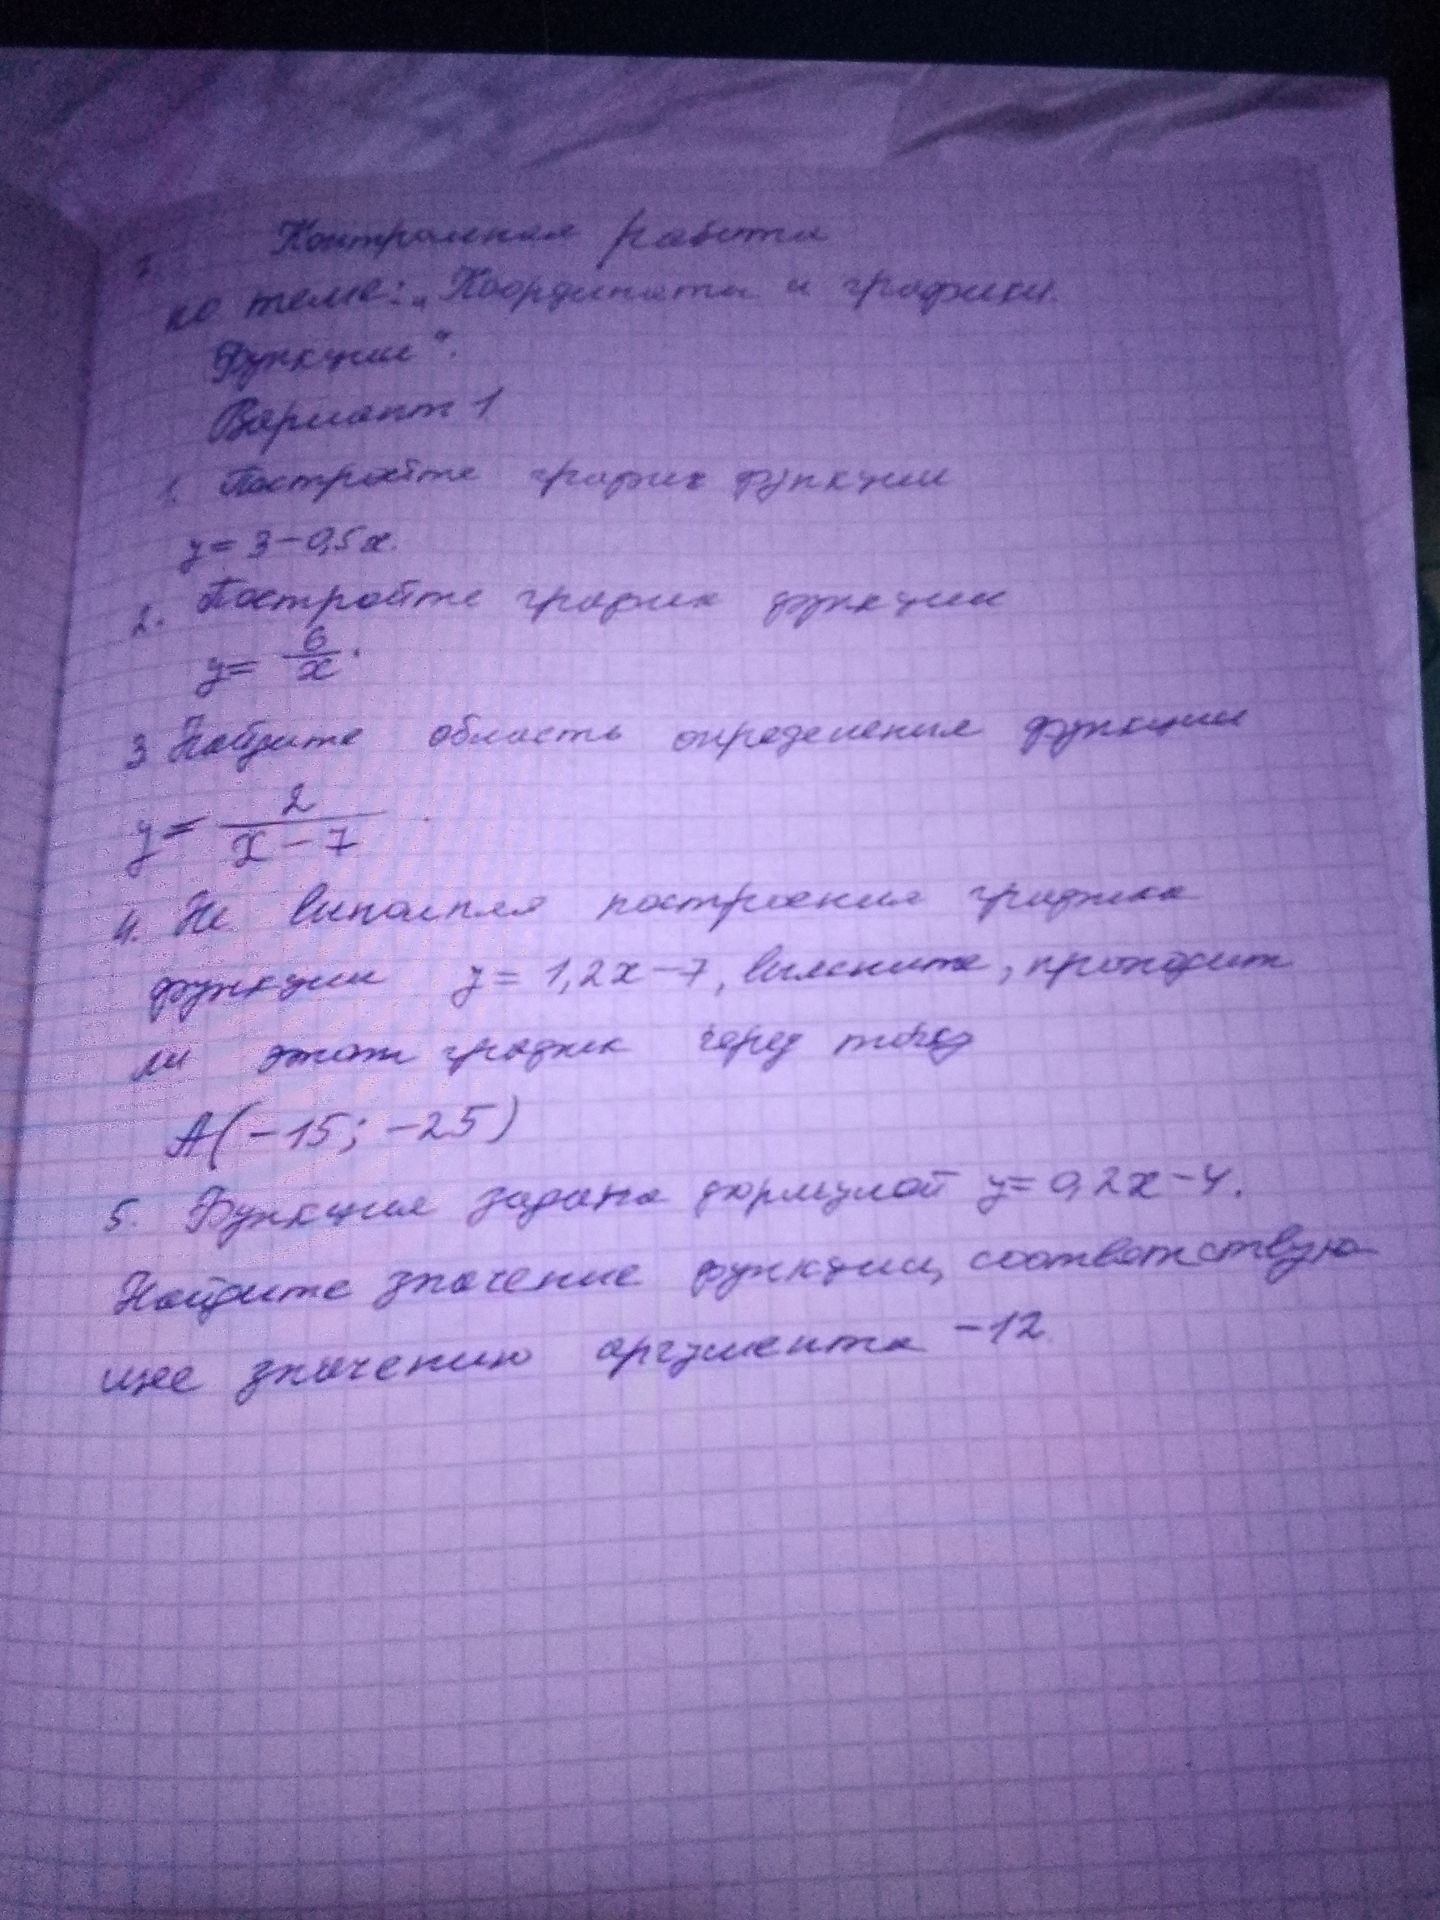 Контрольная работа
по теме: „Координаты и графики
Функции“.
Вариант 1
1. Постройте график функции
y = 3 - 0,5x.
2. Постройте график функции
y = 6/x.
3 Найдите область определения функции
y = 2/(x - 7)
4. Не выполняя построения графика
функции y = 1,2x - 7, выясните, проходит
ли этот график через точку
A(-15; -25)
5. Функция задана формулой y = 0,2x - 4.
Найдите значение функции, соответствую-
щее значению аргумента -12